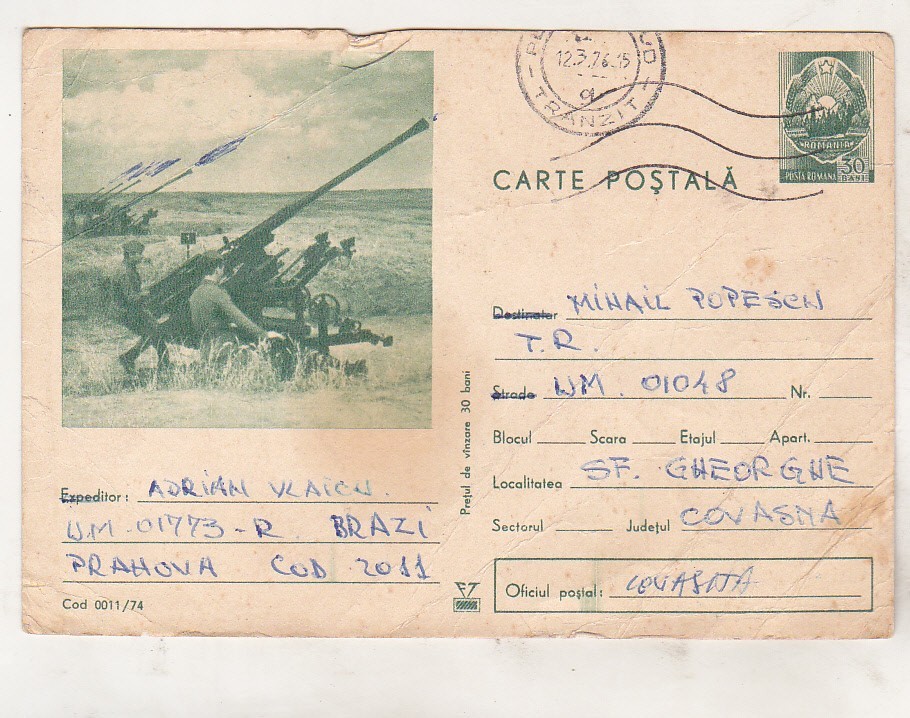 12.3.76.15
TRANZIT
ROMANIA
POSTA ROMANA 30 BANI
CARTE POȘTALĂ
Destinatar MIHAIL POPESCU
T.R.
Strada UM. 01048 Nr.
Blocul Scara Etajul Apart.
Localitatea SF. GHEORGHE
Sectorul Județul COVASNA
Oficiul poștal: COVASNA
Prețul de vînzare 30 bani
Expeditor: ADRIAN VLAICU.
UM-01773-R. BRAZI
PRAHOVA COD 2011
Cod 0011/74